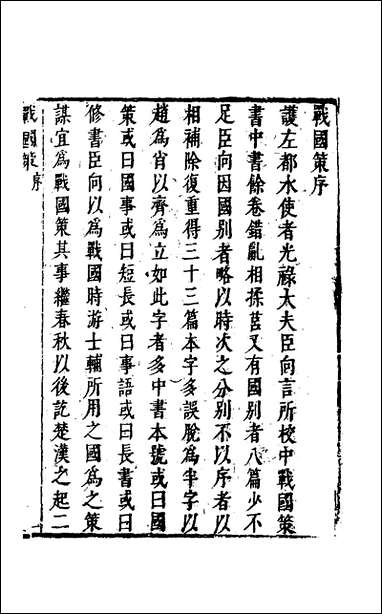 戰國策序
護左都水使者光祿大夫臣向言所校中戰國策
書中書餘卷錯亂相揉莒又有國別者八篇少不
足臣向因國別者略以時次之分別不以序者以
相補除復重得三十三篇本字多誤脫為半字以
趙為肖以齊為立如此字者多中書本號或曰國
策或曰國事或曰短長或曰事語或曰長書或曰
修書臣向以為戰國時游士輔所用之國為之策
謀宜為戰國策其事繼春秋以後訖楚漢之起二
戰國策序